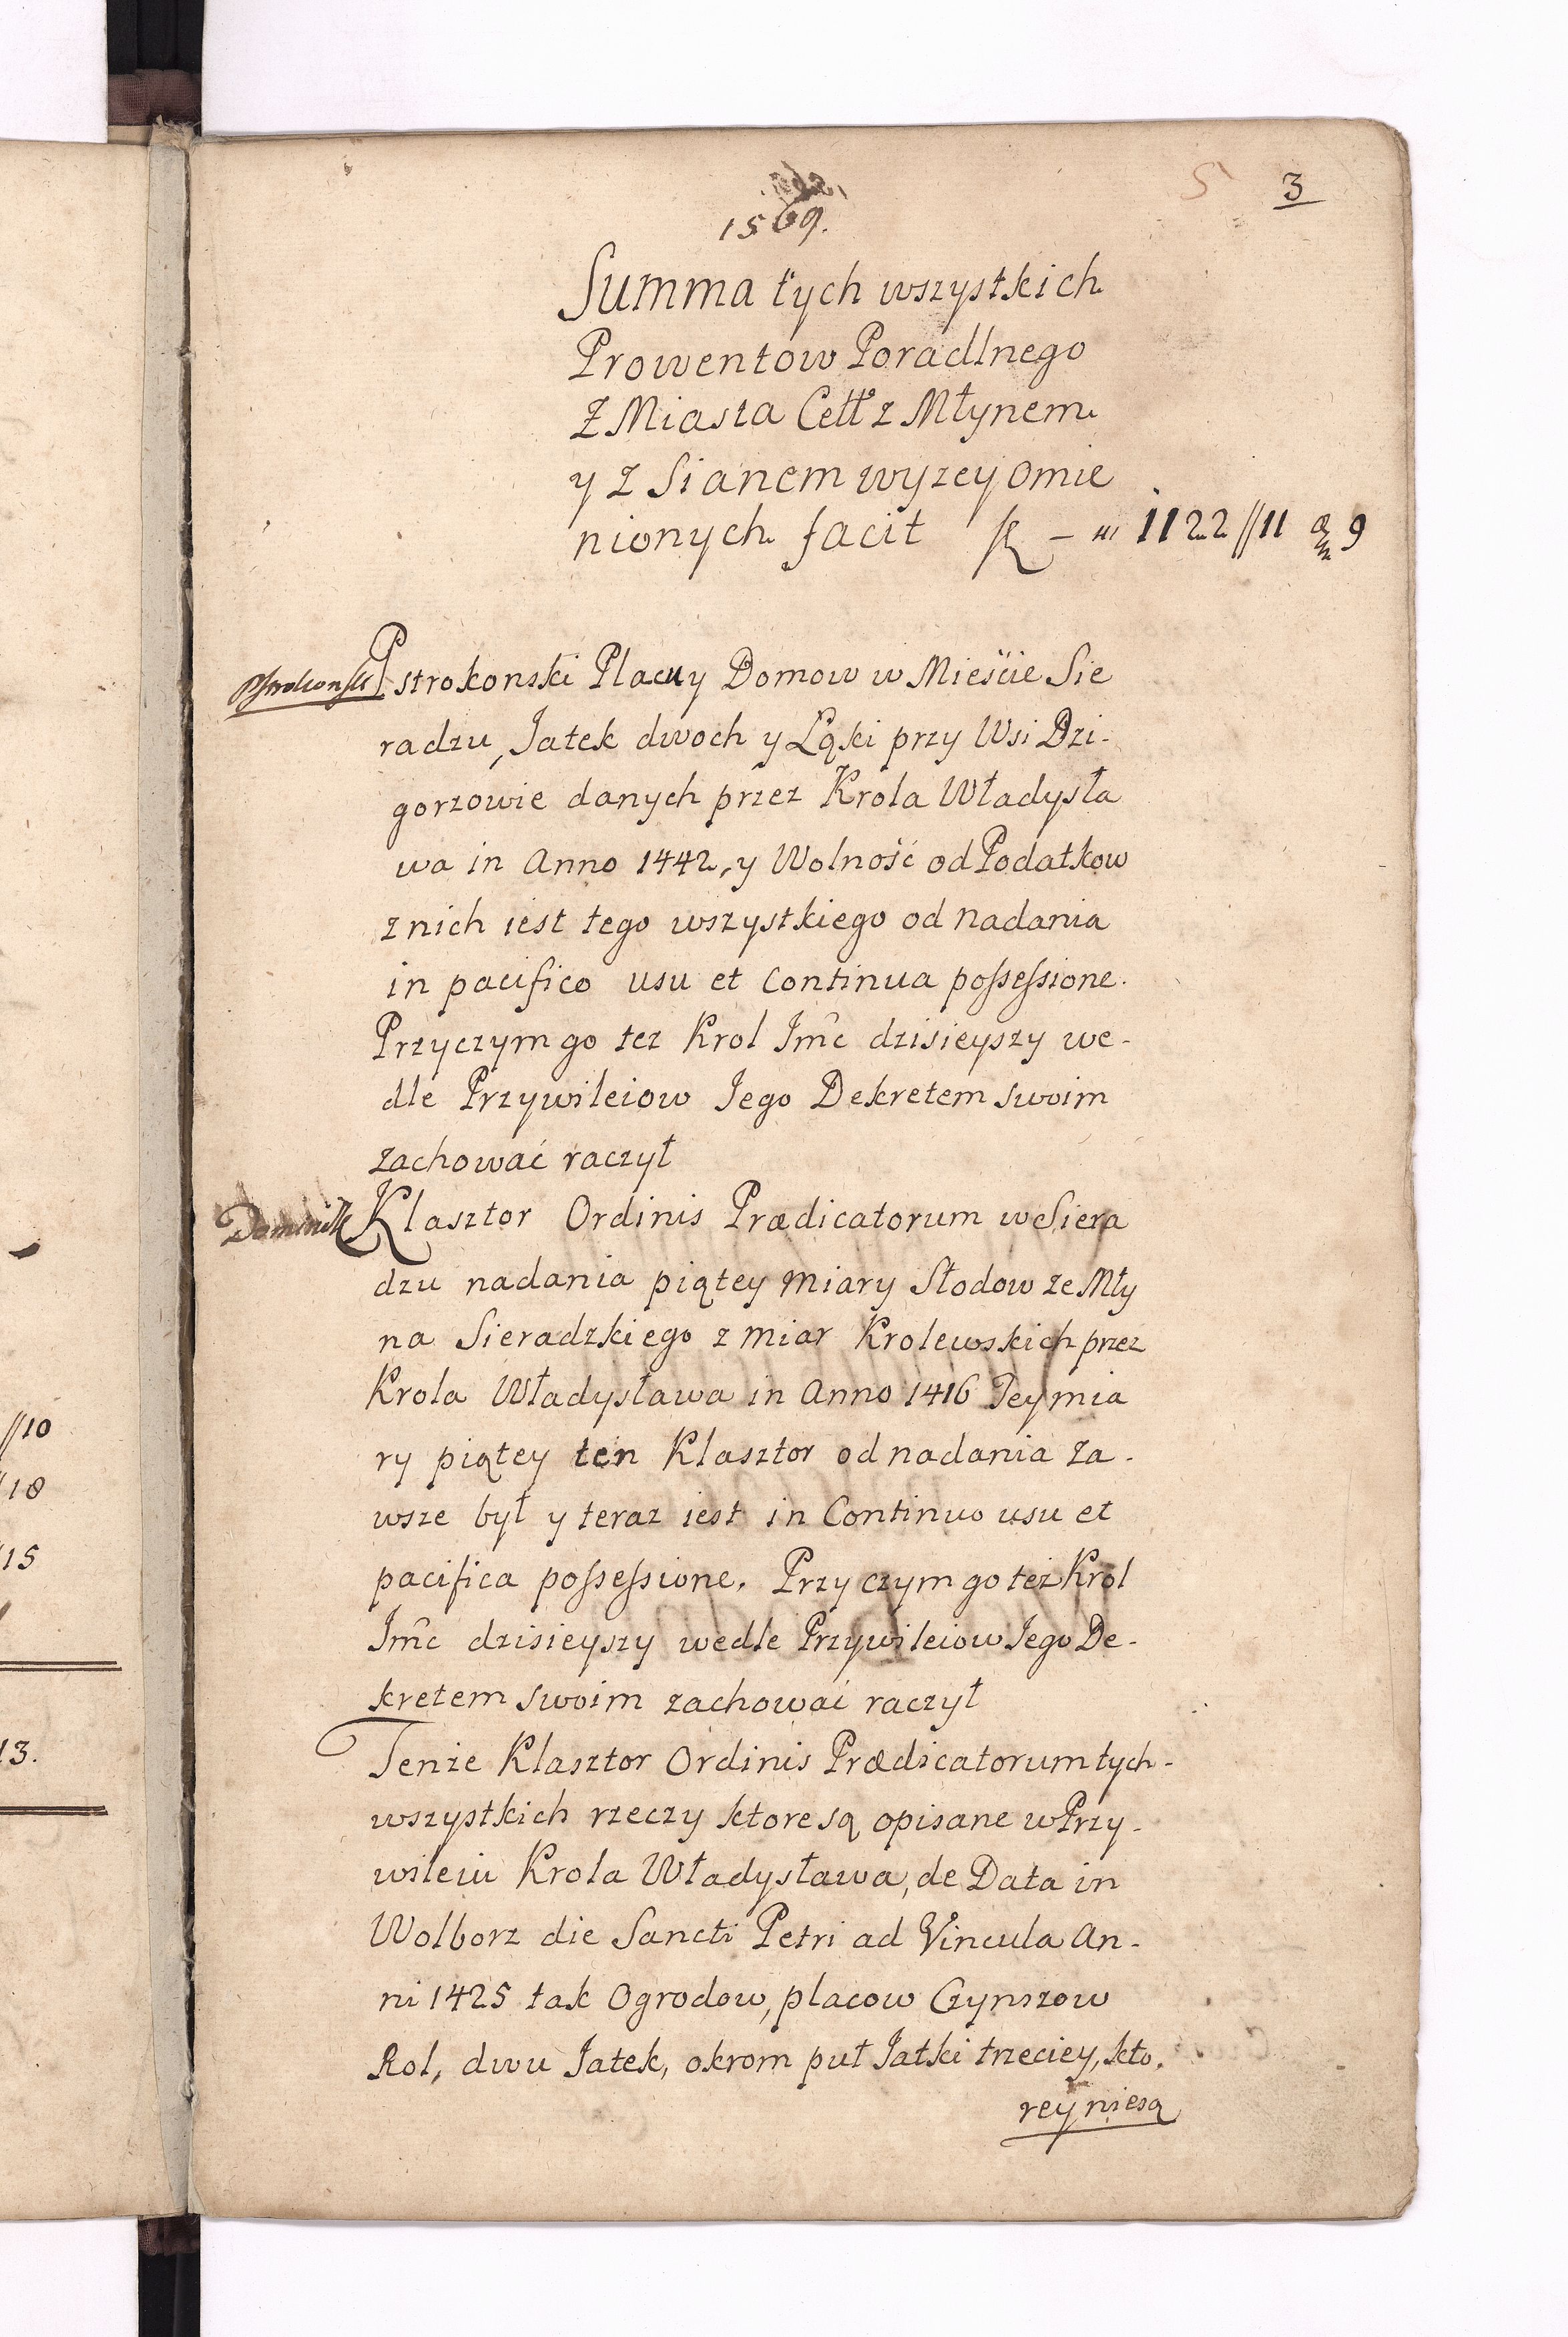 5 3
1569.
Summa tych wszystkich
Prowentow Poradlnego
Z Miasta Cełł z Młynem
y z Sianem wyzey omie
nionych facit — 1122//11 9
Pstrokonski Placu y Domow w Mieście Sie
radzu, Jatek dwoch y Łąki przy Wsi Dzi-
gorzowie danych przez Krola Władysła
wa in Anno 1442, y Wolność od Podatkow
z nich iest tego wszystkiego od nadania
in pacifico usu et continua possessione.
Przyczym go tez Krol Jmc dzisieyszy we-
dle Przywileiow Jego Dekretem swoim
zachować raczył
Dominik Klasztor Ordinis Prædicatorum w Siera
dzu nadania piątey miary Słodow ze Mły
na Sieradzkiego z miar Krolewskich przez
Krola Władysława in Anno 1416 Tey mia
ry piątey ten Klasztor od nadania za-
wsze był y teraz iest in Continuo usu et
pacifica possessione. Przyczym go też Krol
Jmc dzisieyszy wedle Przywileiow Jego De-
kretem swoim zachować raczył
Tenże Klasztor Ordinis Prædicatorum tych-
wszystkich rzeczy ktore są opisane w Przy-
wileiu Krola Władysława, de Data in
Wolborz die Sancti Petri ad Vincula An-
ni 1425 tak Ogrodow, placow Czynszow
Rol, dwu Jatek, okrom puł Jatki trzeciey, kto-
rey niesą
//10
18
15
13.